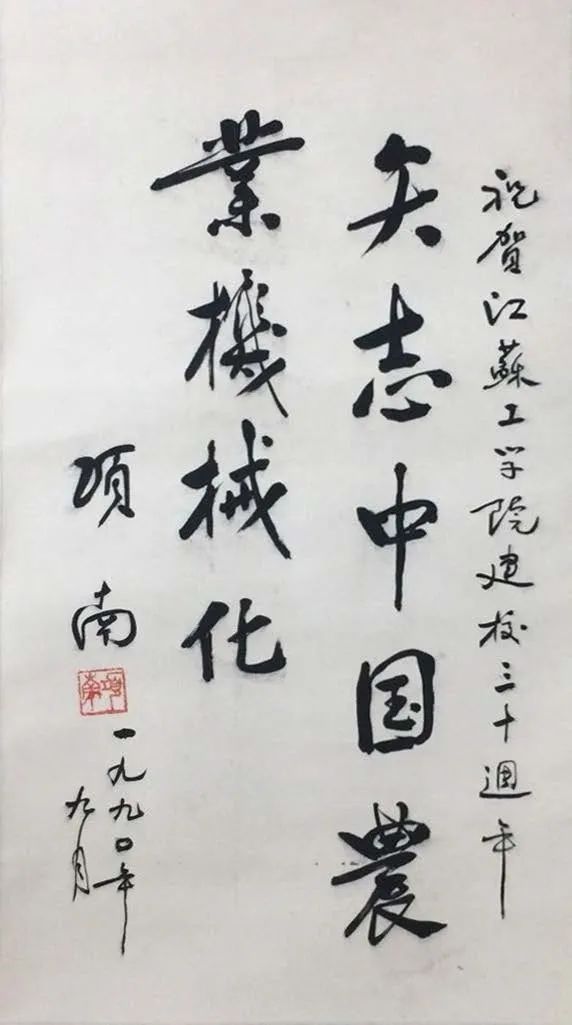 祝賀江蘇工学院建校三十週年
矢志中国農
業機械化
項南
項南
一九九〇年
九月